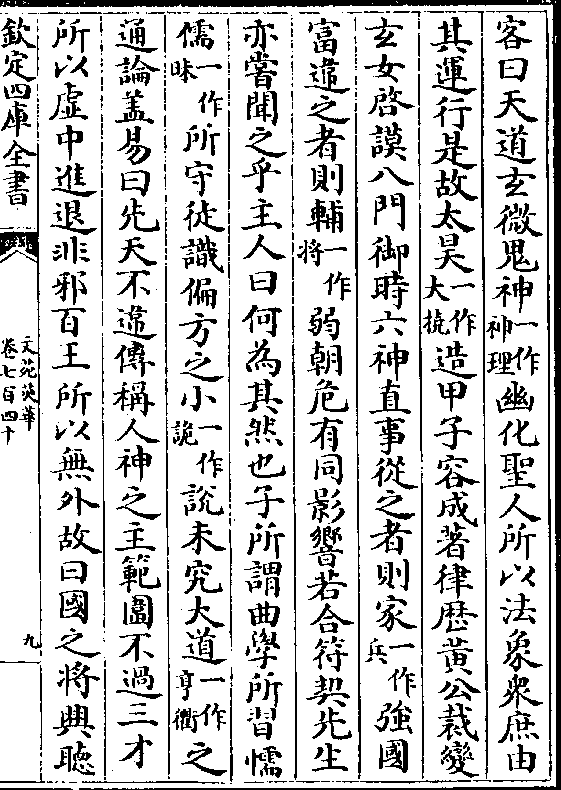 客曰天道玄微鬼神一作神理幽化聖人所以法象衆庶由
其運行是故太昊一作大撓造甲子容成著律歴黄公裁變
玄女啓謨八門御時六神直事從之者則家一作兵強國
富違之者則輔一作將弱朝危有同影響若合符契先生
亦嘗聞之乎主人曰何為其然也子所謂曲學所習懦
儒一作昧所守徒識偏方之小一作詭說未究大道一作亨衢之
通論盖易曰先天不違傳稱人神之主範圍不過三才
所以虚中進退非邪百王所以無外故曰國之將興聽
欽定四庫全書
文苑英華
卷七百四十
九